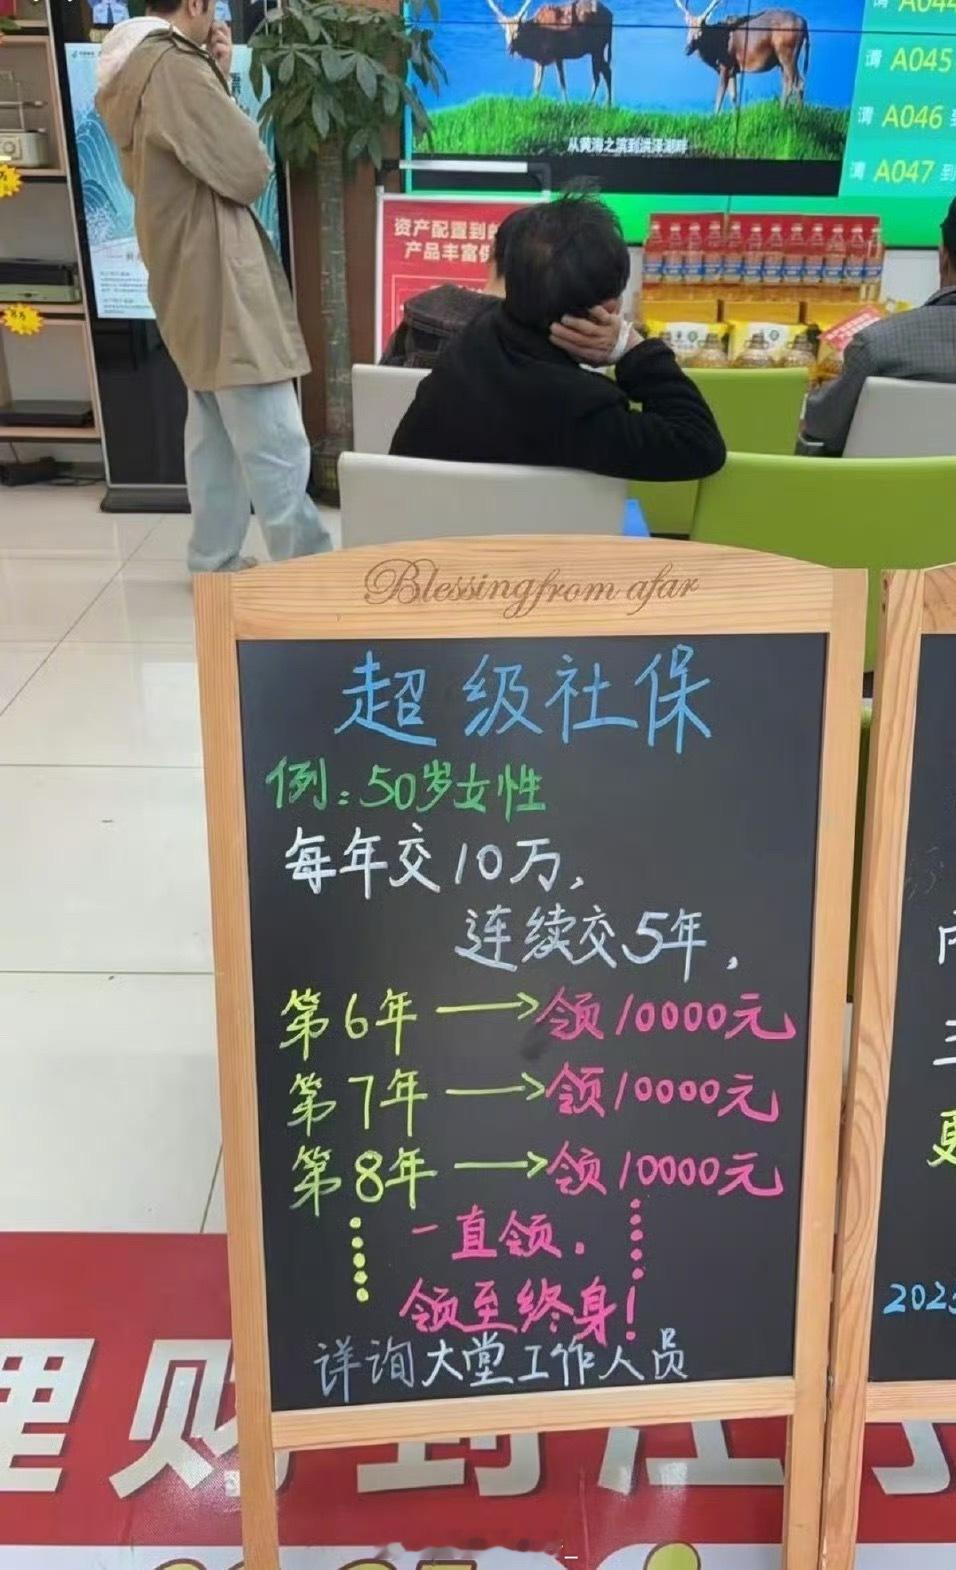 请 A045
请 A046 到
请 A047 到
从黄海之滨到洪泽湖畔
资产配置到
产品丰富
Blessing from afar
超级社保
例：50岁女性
每年交10万，
连续交5年，
第6年→领10000元
第7年→领10000元
第8年→领10000元
一直领．
领至终身！
详询大堂工作人员